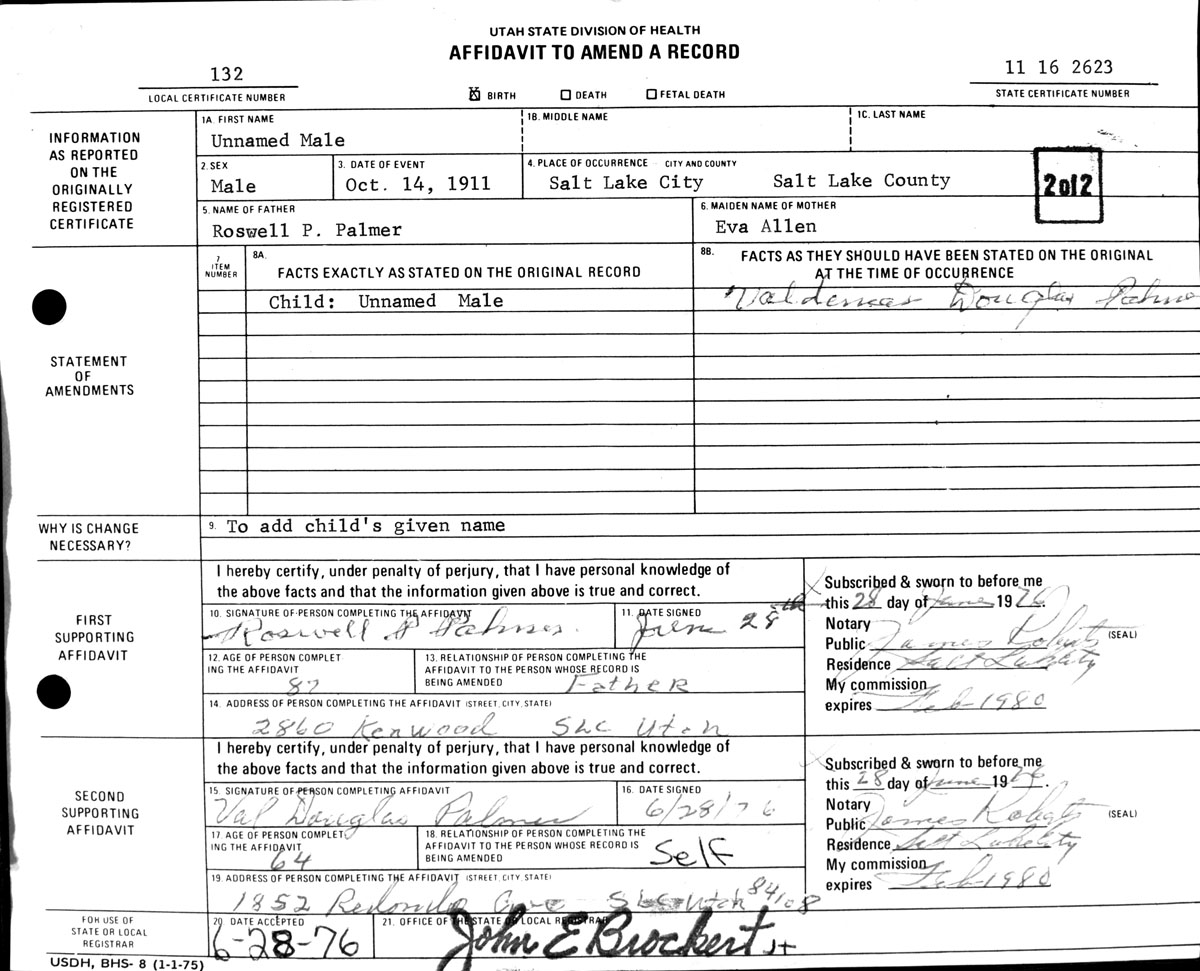 UTAH STATE DIVISION OF HEALTH
AFFIDAVIT TO AMEND A RECORD
132
LOCAL CERTIFICATE NUMBER
☒ BIRTH ☐ DEATH ☐ FETAL DEATH
11 16 2623
STATE CERTIFICATE NUMBER
INFORMATION
AS REPORTED
ON THE
ORIGINALLY
REGISTERED
CERTIFICATE
1A. FIRST NAME 1B. MIDDLE NAME 1C. LAST NAME
Unnamed Male
2. SEX 3. DATE OF EVENT 4. PLACE OF OCCURRENCE - CITY AND COUNTY
Male Oct. 14, 1911 Salt Lake City Salt Lake County
2 of 2
5. NAME OF FATHER 6. MAIDEN NAME OF MOTHER
Roswell P. Palmer Eva Allen
STATEMENT
OF
AMENDMENTS
7
ITEM
NUMBER
8A.
FACTS EXACTLY AS STATED ON THE ORIGINAL RECORD
8B. FACTS AS THEY SHOULD HAVE BEEN STATED ON THE ORIGINAL
AT THE TIME OF OCCURRENCE
Child: Unnamed Male Valdemar Douglas Palmer
WHY IS CHANGE
NECESSARY?
9. To add child's given name
FIRST
SUPPORTING
AFFIDAVIT
I hereby certify, under penalty of perjury, that I have personal knowledge of
the above facts and that the information given above is true and correct.
10. SIGNATURE OF PERSON COMPLETING THE AFFIDAVIT 11. DATE SIGNED
Roswell P Palmer June 28th
12. AGE OF PERSON COMPLET
ING THE AFFIDAVIT
13. RELATIONSHIP OF PERSON COMPLETING THE
AFFIDAVIT TO THE PERSON WHOSE RECORD IS
BEING AMENDED Father
14. ADDRESS OF PERSON COMPLETING THE AFFIDAVIT (STREET, CITY, STATE)
2860 Kenwood SLC Utah
Subscribed & sworn to before me
this 28 day of June 1976.
Notary
Public James Roberts (SEAL)
Residence Salt Lake City
My commission
expires Feb 1980
SECOND
SUPPORTING
AFFIDAVIT
I hereby certify, under penalty of perjury, that I have personal knowledge of
the above facts and that the information given above is true and correct.
15. SIGNATURE OF PERSON COMPLETING AFFIDAVIT 16. DATE SIGNED
Val Douglas Palmer 6/28/76
17. AGE OF PERSON COMPLET
ING THE AFFIDAVIT
64
18. RELATIONSHIP OF PERSON COMPLETING THE
AFFIDAVIT TO THE PERSON WHOSE RECORD IS
BEING AMENDED Self
19. ADDRESS OF PERSON COMPLETING THE AFFIDAVIT (STREET, CITY, STATE)
1852 Redondo Ave SLC Utah 84108
Subscribed & sworn to before me
this 28 day of June 1976.
Notary
Public James Roberts (SEAL)
Residence Salt Lake City
My commission
expires Feb 1980
FOR USE OF
STATE OR LOCAL
REGISTRAR
20. DATE ACCEPTED 21. OFFICE OF THE STATE OR LOCAL REGISTRAR
6-28-76 John E Brockert
USDH, BHS- 8 (1-1-75)